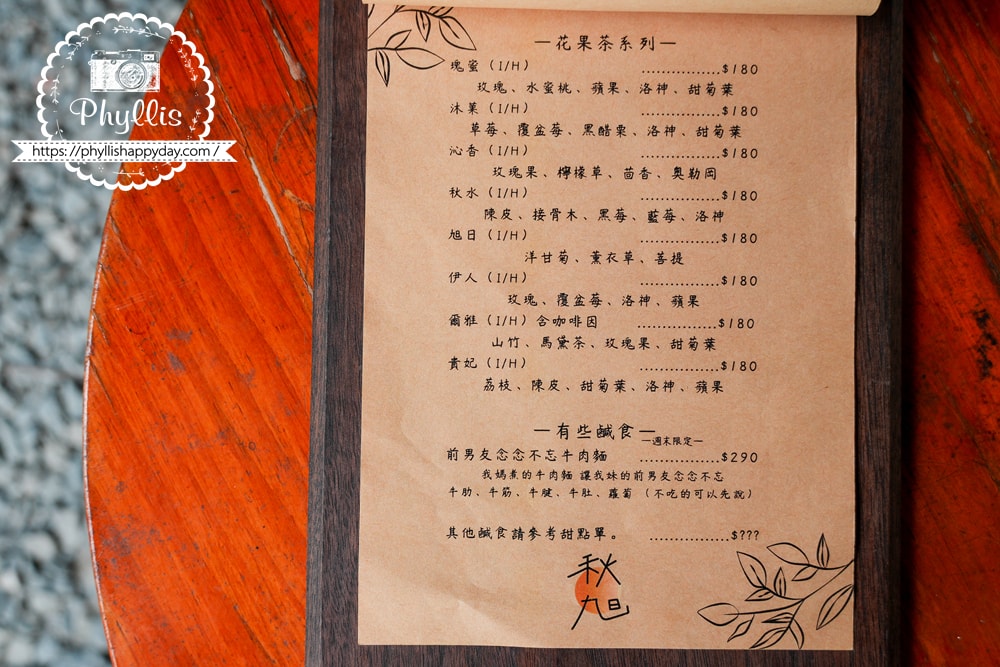 Phyllis
https://phyllishappyday.com/
—花果茶系列—
瑰蜜（I/H） ................$180
玫瑰、水蜜桃、蘋果、洛神、甜菊葉
沐菓（I/H） ................$180
草莓、覆盆莓、黑醋栗、洛神、甜菊葉
沁香（I/H） ................$180
玫瑰果、檸檬草、茴香、奧勒岡
秋水（I/H） ................$180
陳皮、接骨木、黑莓、藍莓、洛神
旭日（I/H） ................$180
洋甘菊、薰衣草、菩提
伊人（I/H） ................$180
玫瑰、覆盆莓、洛神、蘋果
爾雅（I/H）含咖啡因 ................$180
山竹、馬黛茶、玫瑰果、甜菊葉
貴妃（I/H） ................$180
荔枝、陳皮、甜菊葉、洛神、蘋果
—有些鹹食—
—週末限定—
前男友念念不忘牛肉麵 ................$290
我媽煮的牛肉麵 讓我妹的前男友念念不忘
牛肋、牛筋、牛腱、牛肚、蘿蔔（不吃的可以先說）
其他鹹食請參考甜點單。 ................$???
秋
旭